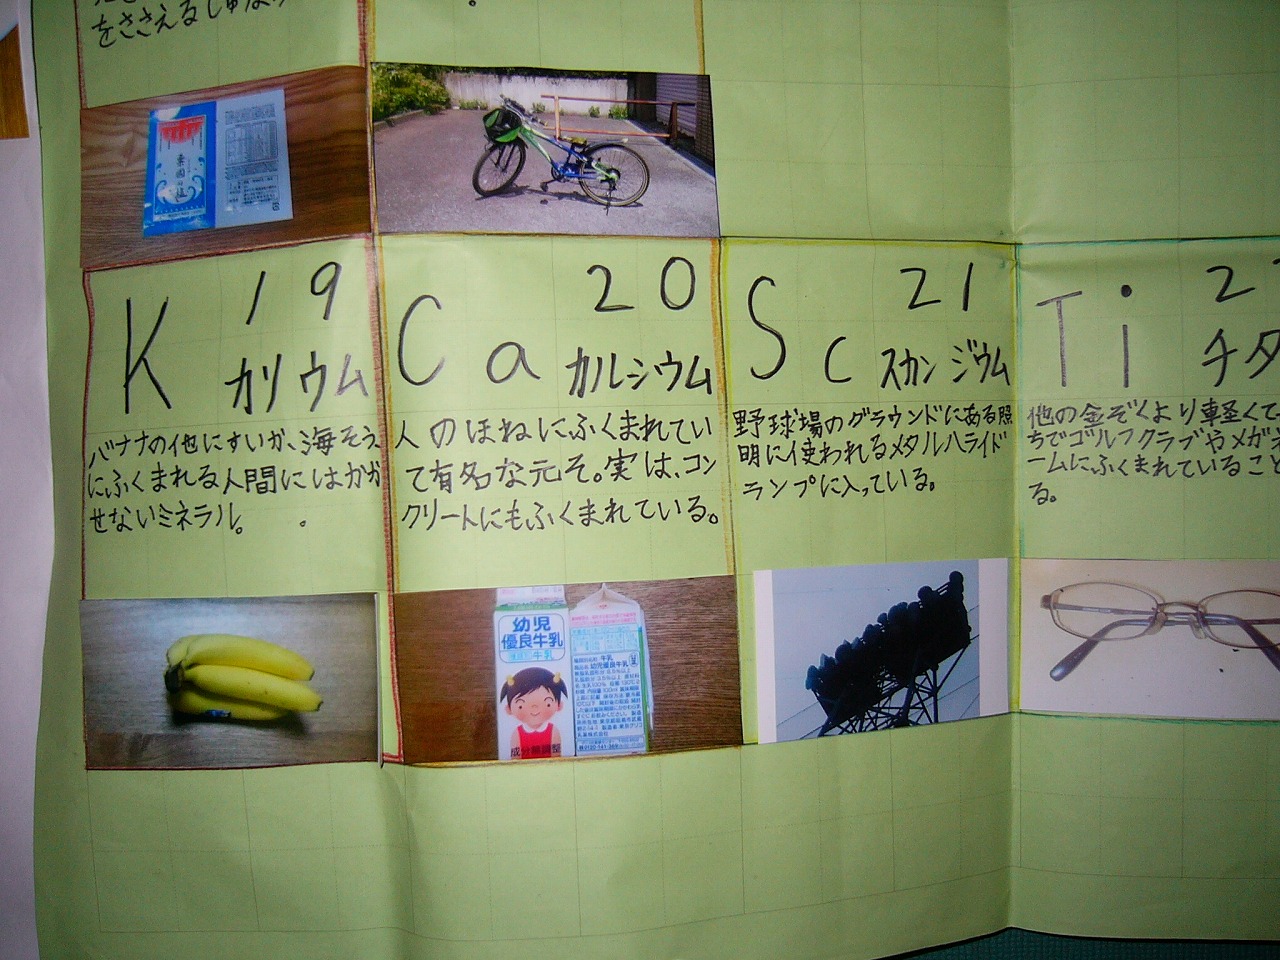 をささえるしゅ
19
K カリウム
バナナの他にすいか、海そう
にふくまれる人間にはかか
せないミネラル。
20
Ca カルシウム
人のほねにふくまれてい
て有名な元そ。実は、コン
クリートにもふくまれている。
21
Sc スカンジウム
野球場のグラウンドにある照
明に使われるメタルハライド
ランプに入っている。
2
Ti チタ
他の金ぞくより軽くて
ちでゴルフクラブやメガネ
ームにふくまれていること
る。
幼児
優良牛乳
牛乳
成分無調整